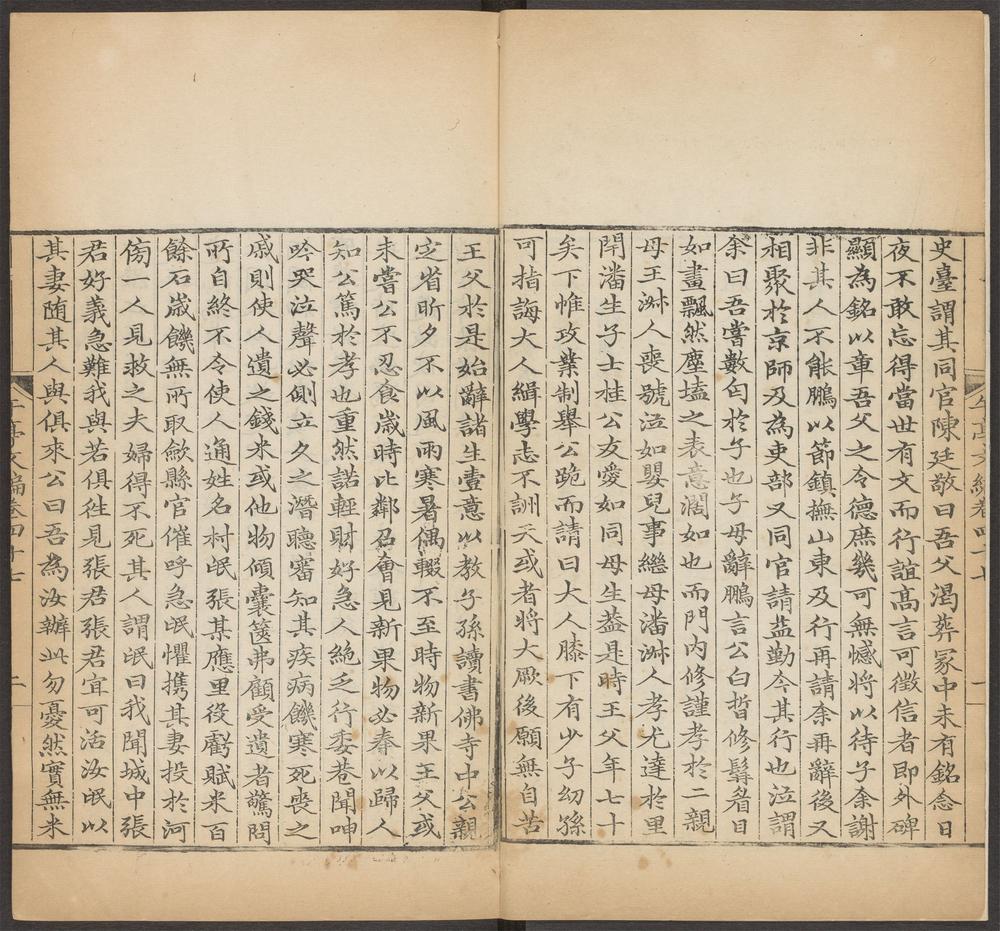 史臺謂其同官陳廷敬曰吾父渴葬冢中未有銘念日
夜不敢忘得當世有文而行誼高言可徵信者即外碑
顯為銘以章吾父之令德庶幾可無憾將以待子余謝
非其人不能鵬以節鎮撫山東及行再請余再辭後又
相聚於京師及為吏部又同官請益勤今其行也泣謂
余曰吾嘗數匄於子也子毋辭鵬言公白晳修髯眉目
如畫飄然塵壒之表意濶如也而門內修謹孝於二親
母王淑人喪號泣如嬰兒事繼母潘淑人孝尤達於里
閈潘生子士桂公友愛如同母生葢是時王父年七十
矣下帷攻業制舉公跪而請曰大人膝下有少子幼孫
可指誨大人緝學志不訓天或者將大厥後願無自苦
王父於是始辭諸生壹意以教子孫讀書佛寺中公親
定省昕夕不以風雨寒暑偶輟不至時物新果王父或
未嘗公不忍食歲時比鄰召會見新果物必奉以歸人
知公篤於孝也重然諾輕財好急人絕乏行委巷聞呻
吟哭泣聲必側立久之潛聽審知其疾病饑寒死喪之
戚則使人遺之錢米或他物傾囊篋弗顧受遺者驚問
所自終不令使人通姓名村氓張某應里役虧賦米百
餘石歲饑無所取歛縣官催呼急氓懼攜其妻投於河
傍一人見救之夫婦得不死其人謂氓曰我聞城中張
君好義急難我與若俱徃見張君張君宜可活汝氓以
其妻随其人與俱來公曰吾為汝辦此勿憂然實無米
午亭文編卷四十七
二